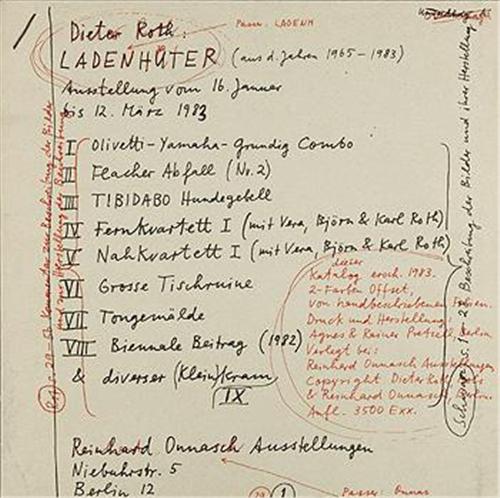 Passer: LADENH
Dieter Roth:
LADENHÜTER (aus d. Jahren 1965 - 1983)
Ausstellung vom 16. Januar
bis 12. März 1983
I Olivetti-Yamaha-Grundig Combo
II Flacher Abfall (No. 2)
III TIBIDABO Hundegebell
IV Fernkvartett I (mit Vera, Björn & Karl Roth)
V Nahkvartett I (mit Vera, Björn & Karl Roth)
VI Grosse Tischruine
VII Tongemälde
VIII Biennale Beitrag (1982)
& diverser (Klein)kram
IX
dieser
Katalog ersch. 1983.
2-Farben Offset,
von handbeschriebenen Folien.
Druck und Herstellung:
Agnes & Rainer Pretzell, Berlin
Verlegt bei:
Reinhard Onnasch Ausstellungen
Copyright Dieter Roth
& Reinhard Onnasch
Aufl. 3500 Exx.
Reinhard Onnasch Ausstellungen
Niebuhrstr. 5
Berlin 12
Passer: Onnas
1
Kommentar zur Beschreibung der Bilder
und zur Herstellung der Beschreibung
Beschreibung der Bilder und ihrer Herstellung